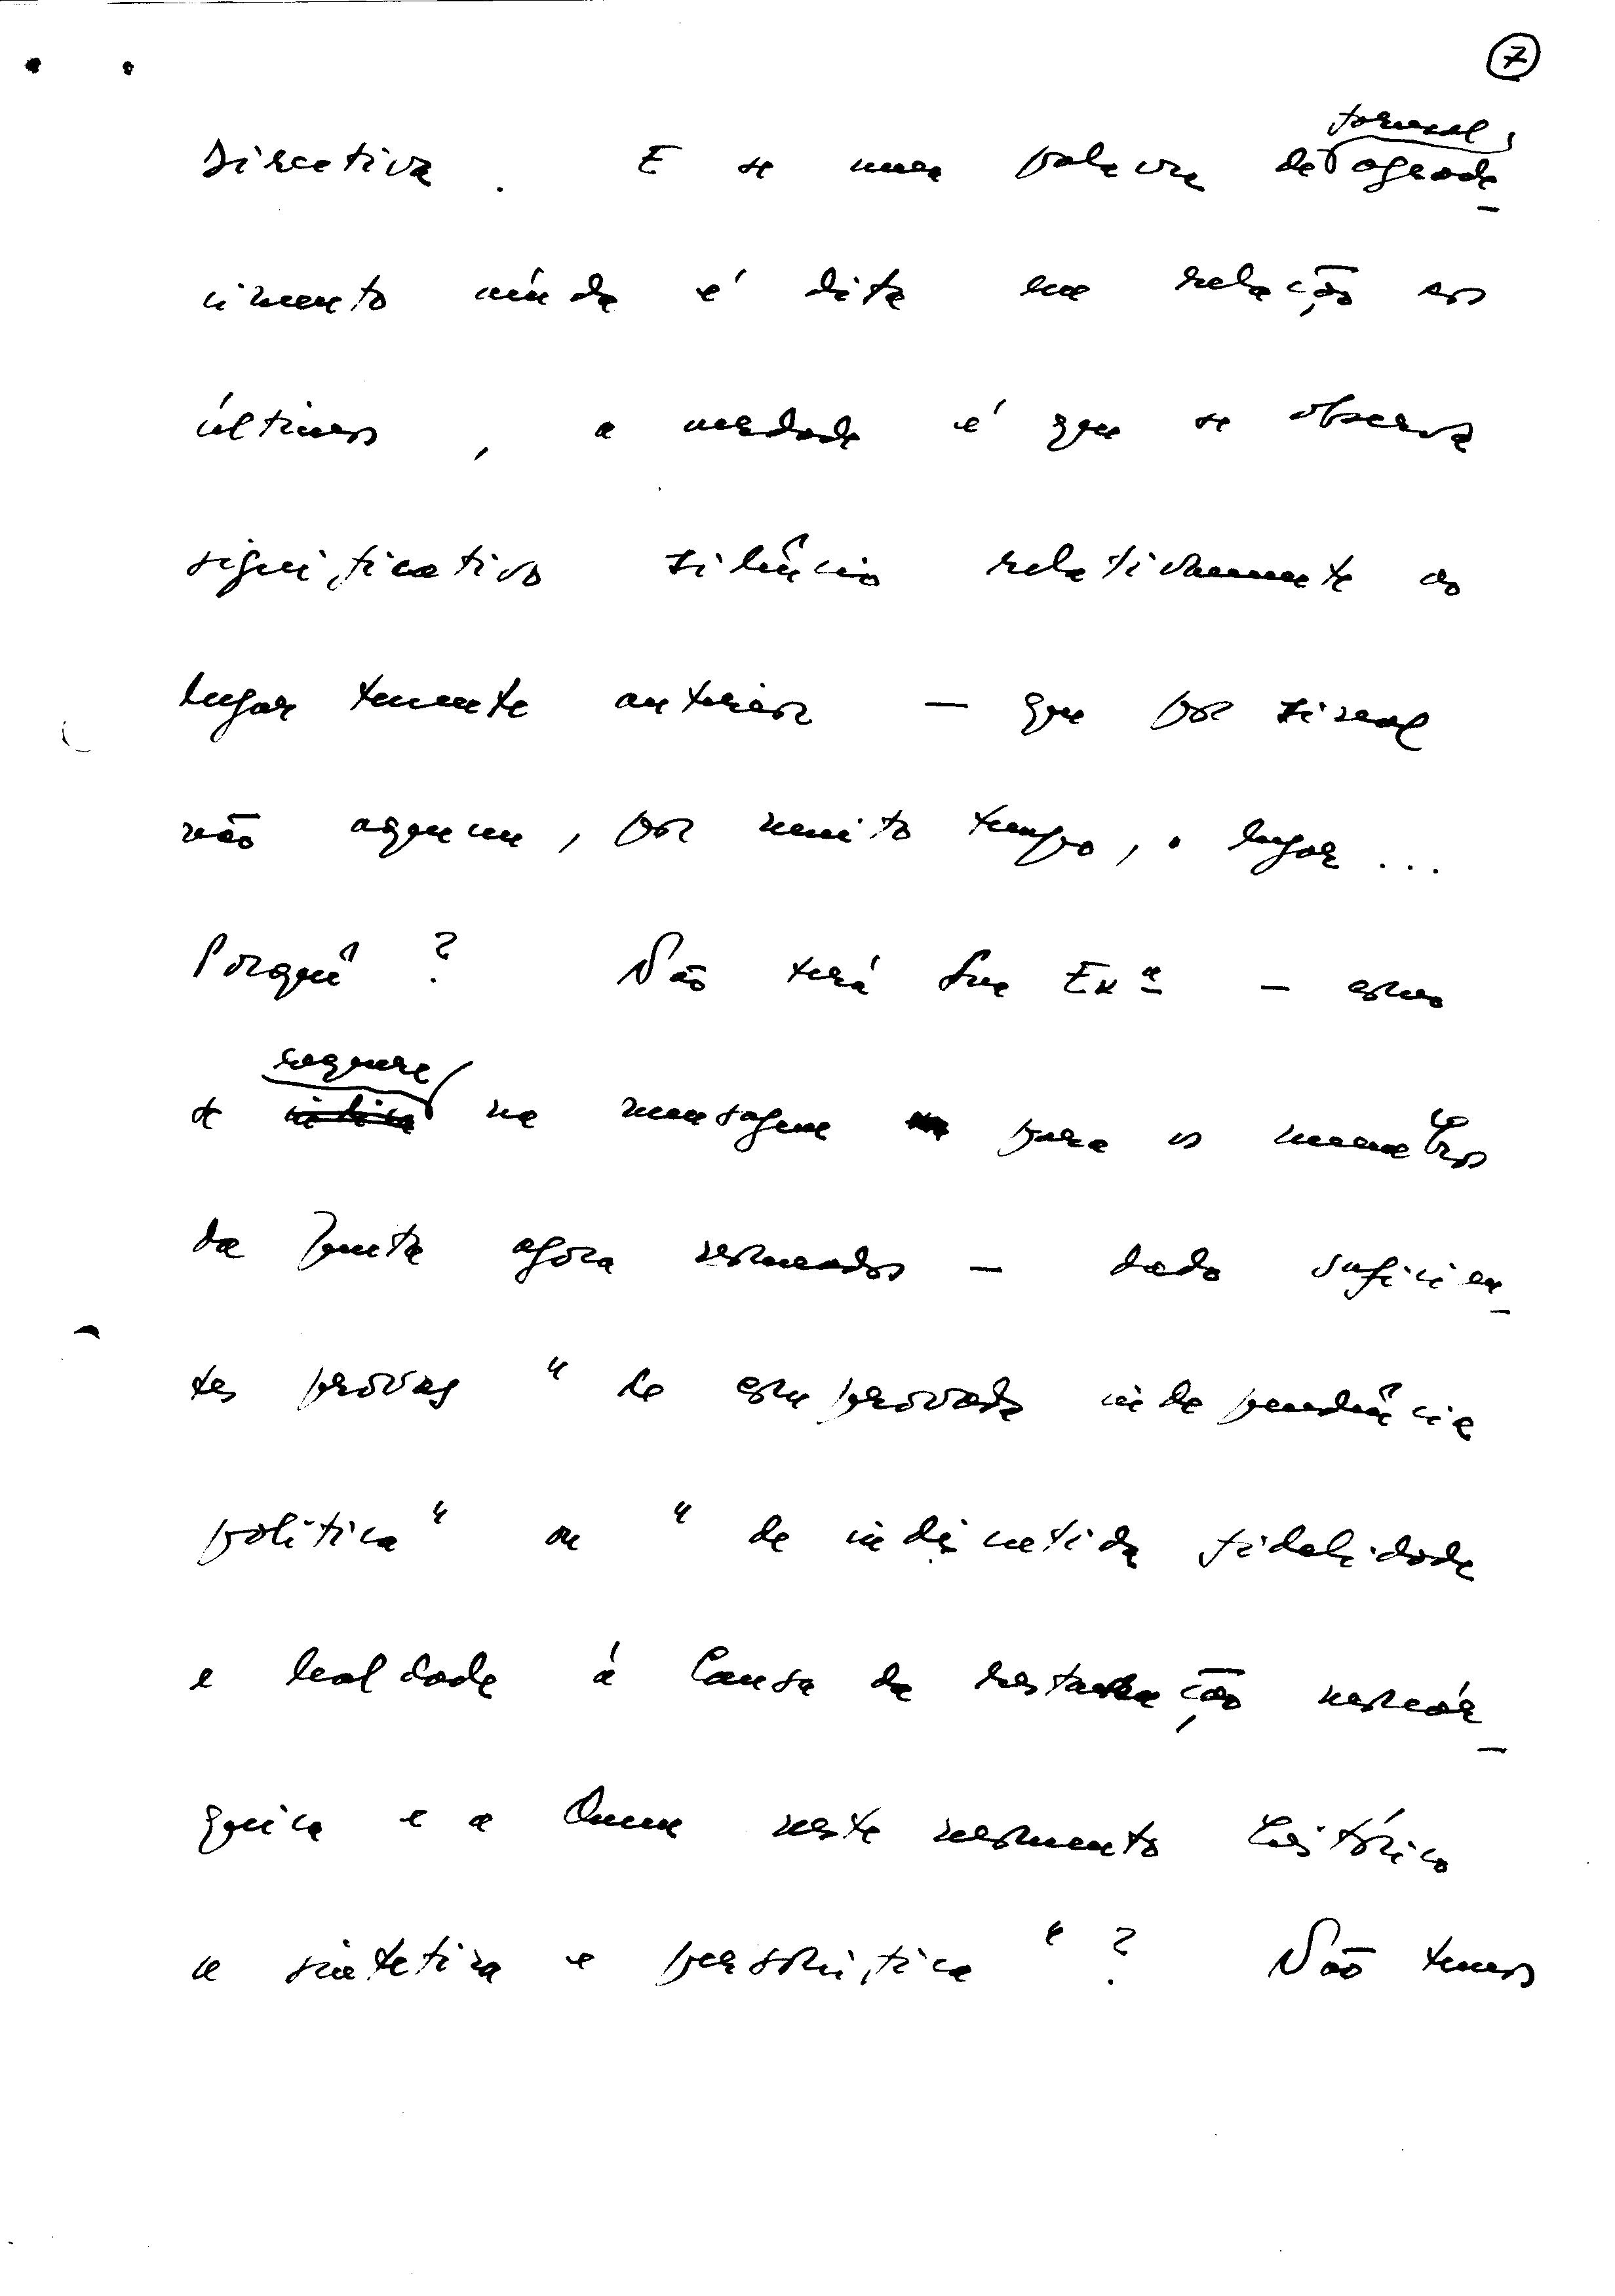 7
formal,
Directiva. E se uma palavra de agrade-
cimento ainda é dita em relação aos
últimos, a verdade é que se observa
significativo silêncio relativamente ao
lugar tenente anterior — que por sinal
não aqueceu, por muito tempo, o lugar...
Porquê? Não terá Sua Exª — como
requere
se na mensagem para os membros
da Junta agora nomeados — dado suficien-
tes provas "de comprovada independência
política" ou "de indiscutida fidelidade
e lealdade à Causa da restauração monár-
quica e a Quem neste momento histórico
a sintetiza e personifica"? Não temos